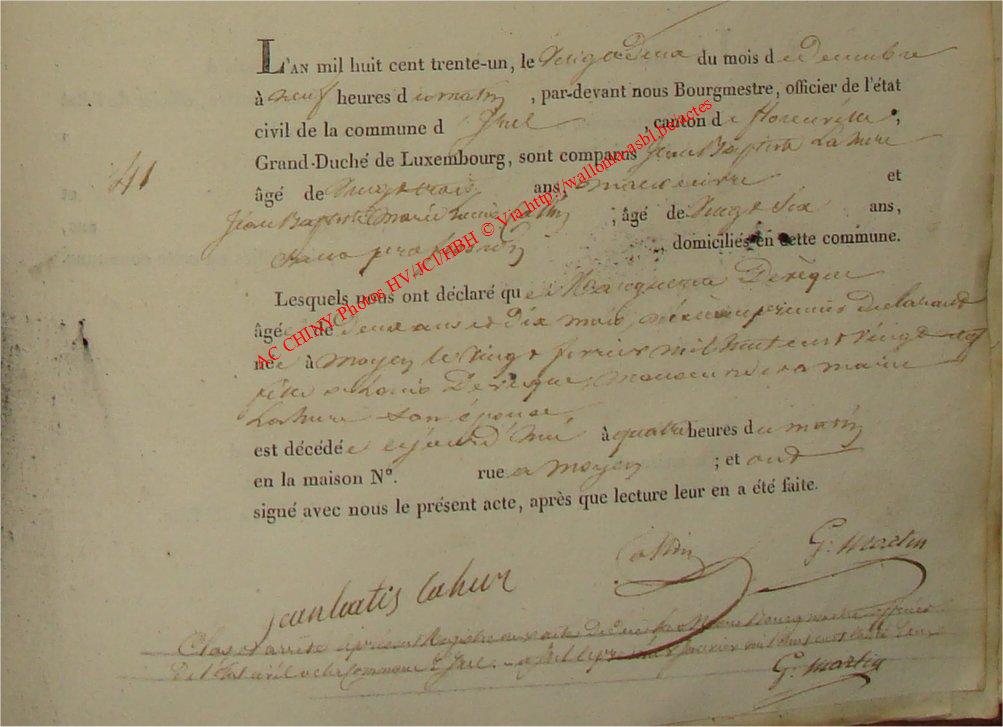 L'AN mil huit cent trente-un, le vingt deux du mois de decembre
à neuf heures du matin, par-devant nous Bourgmestre, officier de l'état
civil de la commune d' Izel, canton de florenville,
41
Grand-Duché de Luxembourg, sont comparus Jean Baptiste Lahure
âgé de vingt trois ans, manoeuvre et
Jean Baptiste Marie ; âgé de vingt six ans,
sans profession, domiciliés en cette commune.
Lesquels nous ont déclaré que Marguerite Derèque
âgée de deux ans et dix mois, du premier declarant
née à moyen le vingt fevrier mil huit cent vingt neuf
fille de Louis Derèque, manoeuvre et de marie
Lahure son épouse
est décédée cejourd'hui à quatre heures du matin
en la maison N°. rue a moyen ; et ont
signé avec nous le présent acte, après que lecture leur en a été faite.
G. Martin
jean batis lahur
Clos et arrêté le présent Registre aux actes de décès par Nous Bourgmestre officier
De l'Etat civil de la Commune d'Izel. a Izel le premier janvier mil huit cent trente deux
G. Martin
AC CHINY Photos HV/JCI/HBH © Via http://wallonia.asbl.be/actes